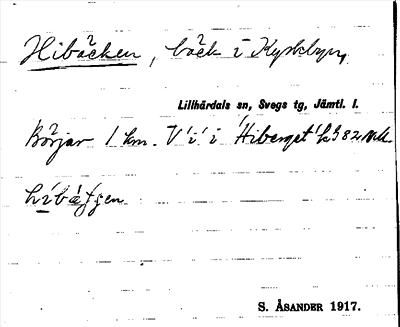 Hibäcken, bäck i Kyrkbyn,
Lillhärdals sn, Svegs tg, Jämtl. l.
Börjar 1 km. V i Hiberget
híbætjen
S. ÅSANDER 1917.